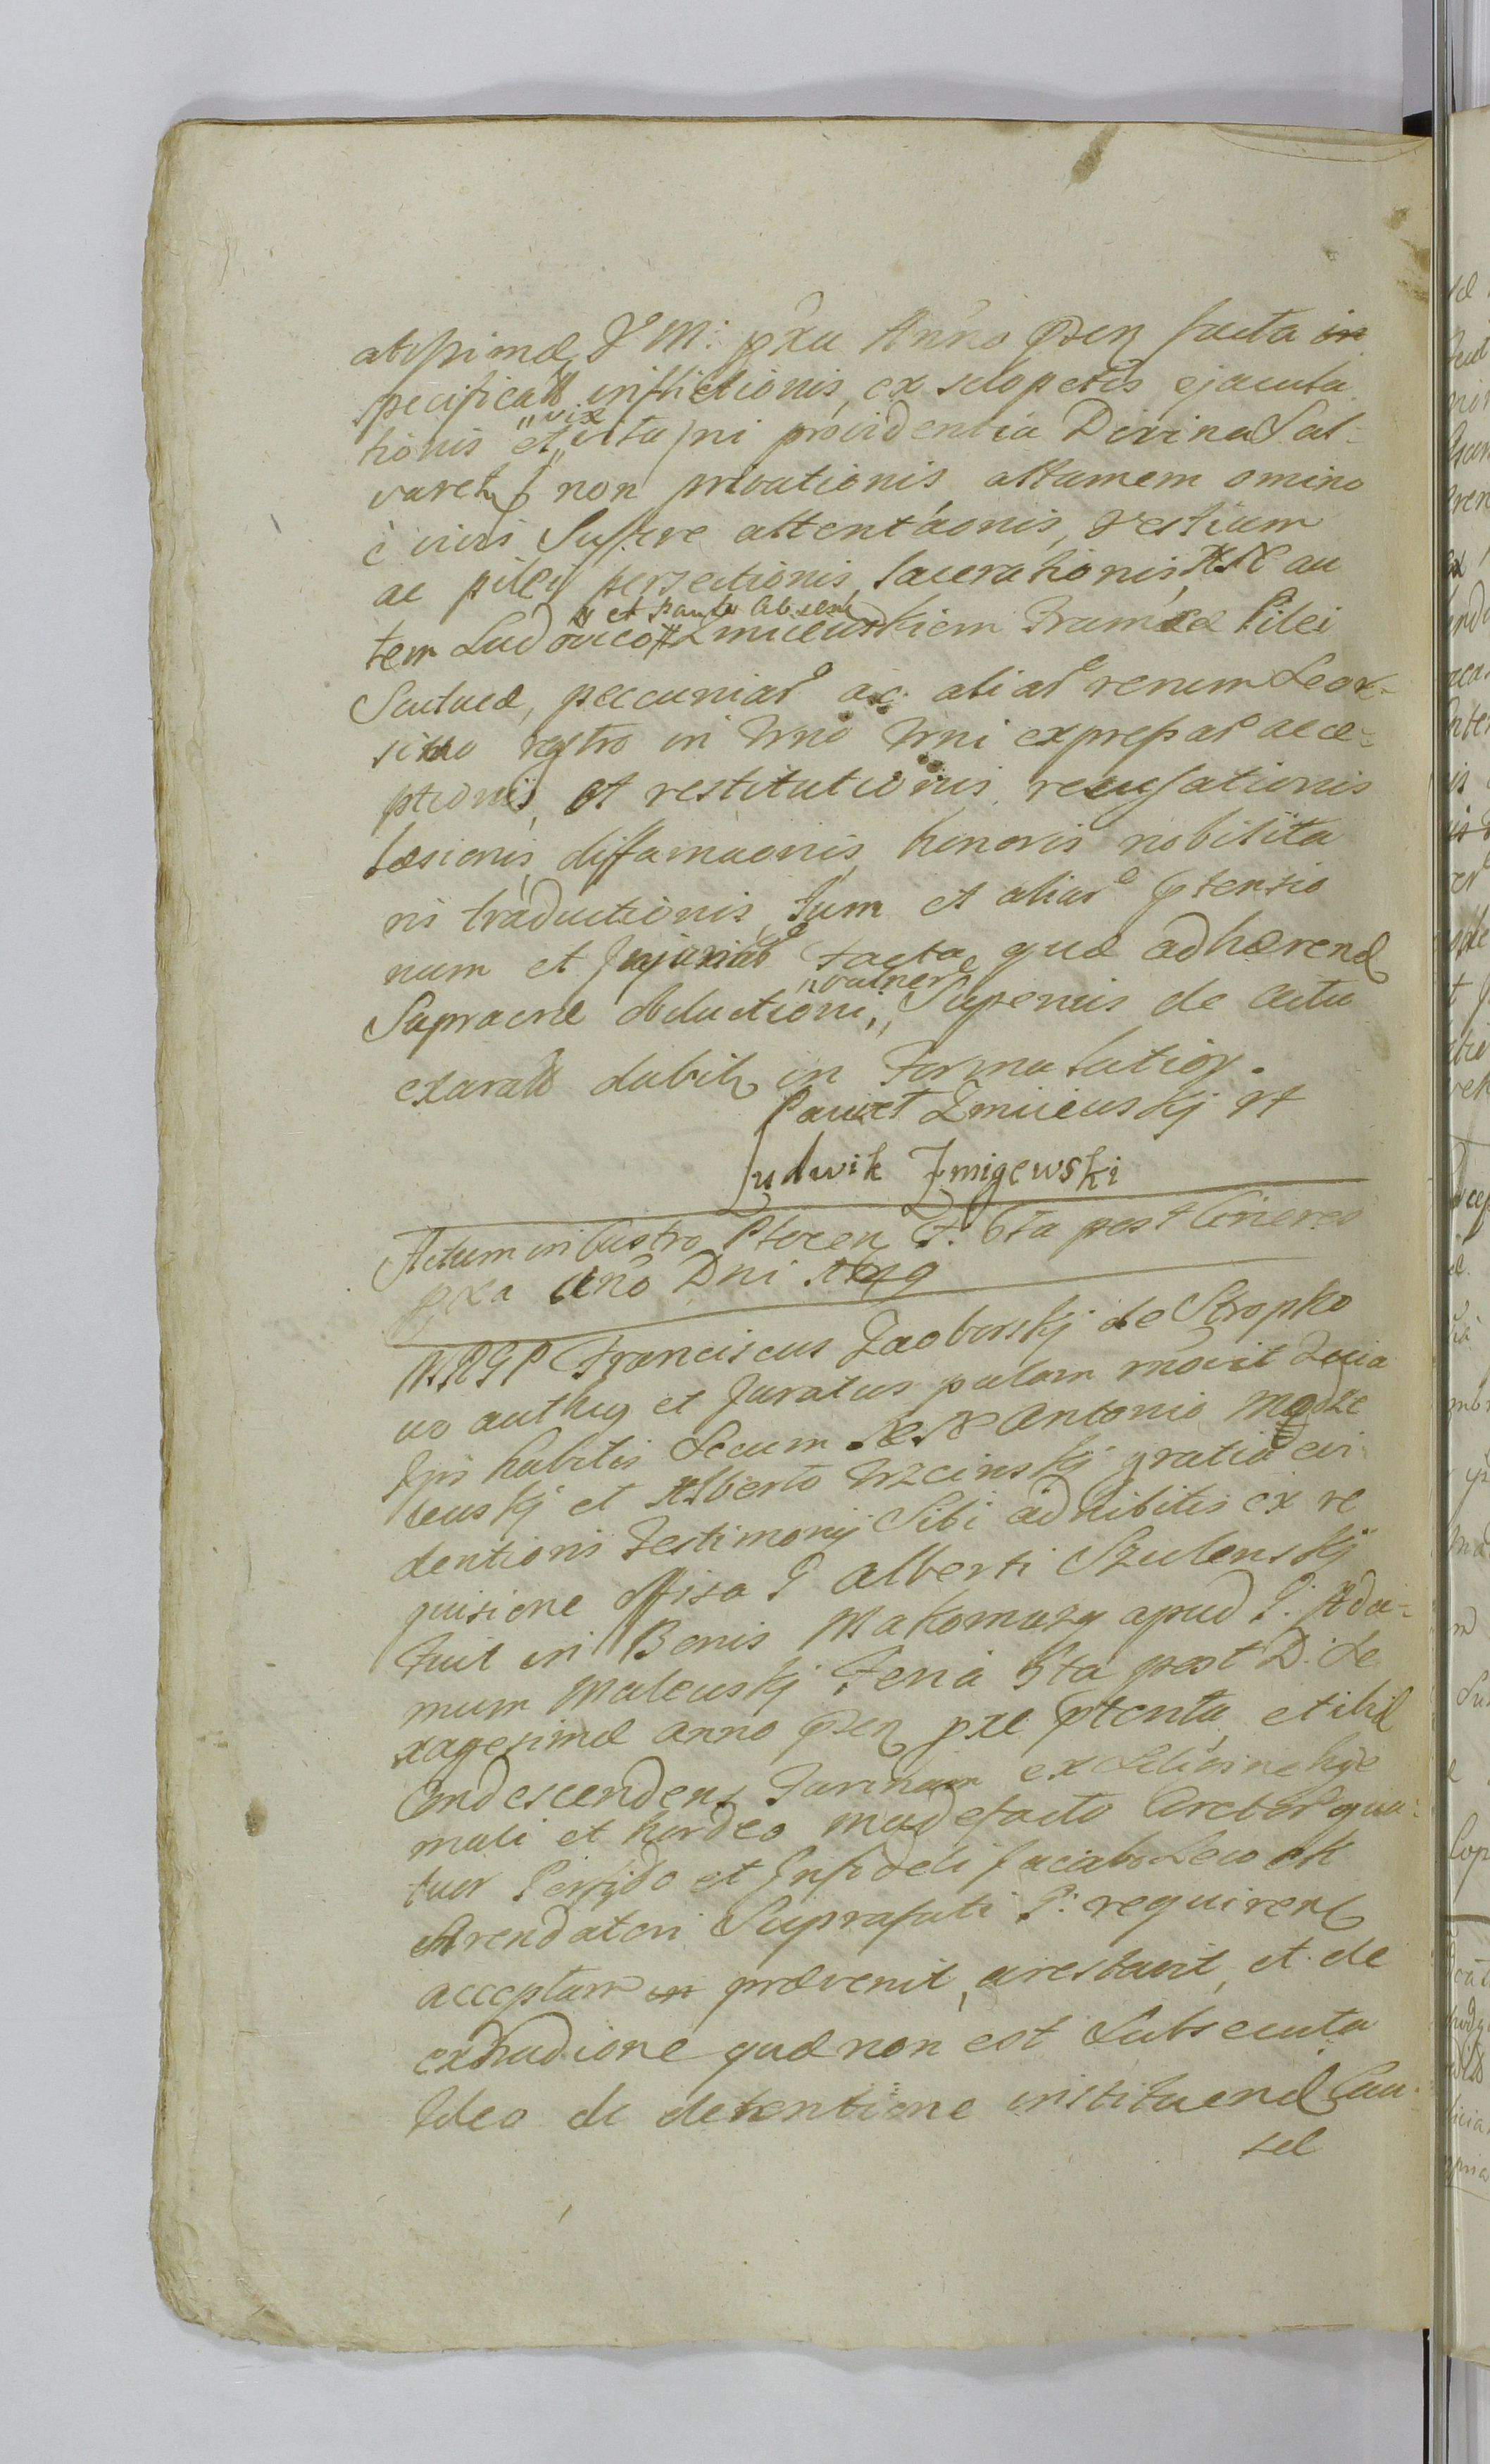 atissimæ V M: pxa Anno Psen facta in
specificatt inflictionis, ex sclopetis ejacula
tionis et "vix" vita ni providentia Divina Sal-
varet, non privationis attamen omino
è vivis Suffere attentaonis, vestium
ac pilei persectionis, lacerationis, NN au
tem Ludovico "et Paulo absen" Zmiiewskiem Frameæ Pilei
Scutucæ, pecuniar ac aliar rerum
registro in Trno Trni expressar acce-
ptionis, et restitutionis recusationis
læsionis, diffamaonis, honoris nobilita
ris traductionis, tum et aliar ptensio
num et Injuriar facta quæ adhærend
Supracne obductioni, "vulner" Superius de actu
exaratt dabit, in Forma latior.
Paweł Zmiiewskj
Ludwik Żmigewski
Actum in Castro Plocen F. 6ta post Cineres
pxa Ano Dni
MRGP Franciscus Zaborskj de Stropko
wo authen et Juratus palam movit Quia
Ipse habitis Secum NN Antonio Modze
lewskj et Alberto Trzcinskj gratia evi
dentioris Testimonij Sibi adhibitis ex re
quisione offisa G Alberti Szulenskj
Fuit in Bonis Makomazy apud G. Ada-
mum Malewskj Feria 5ta post D. Se
xagesimæ anno Psen pxe ptenta et ibid
Condescendens Farinam ex Siligine hye
mali et hordeo madefacto Corctor qua-
tuor Perfido et Infideli Jacobo Lewek
Arendatori Suprafati G: requiren
acceptam prævenit, arestavit, et de
extradione quæ non est Subsecuta
Ideo de detentione instituend Cau-
sæ